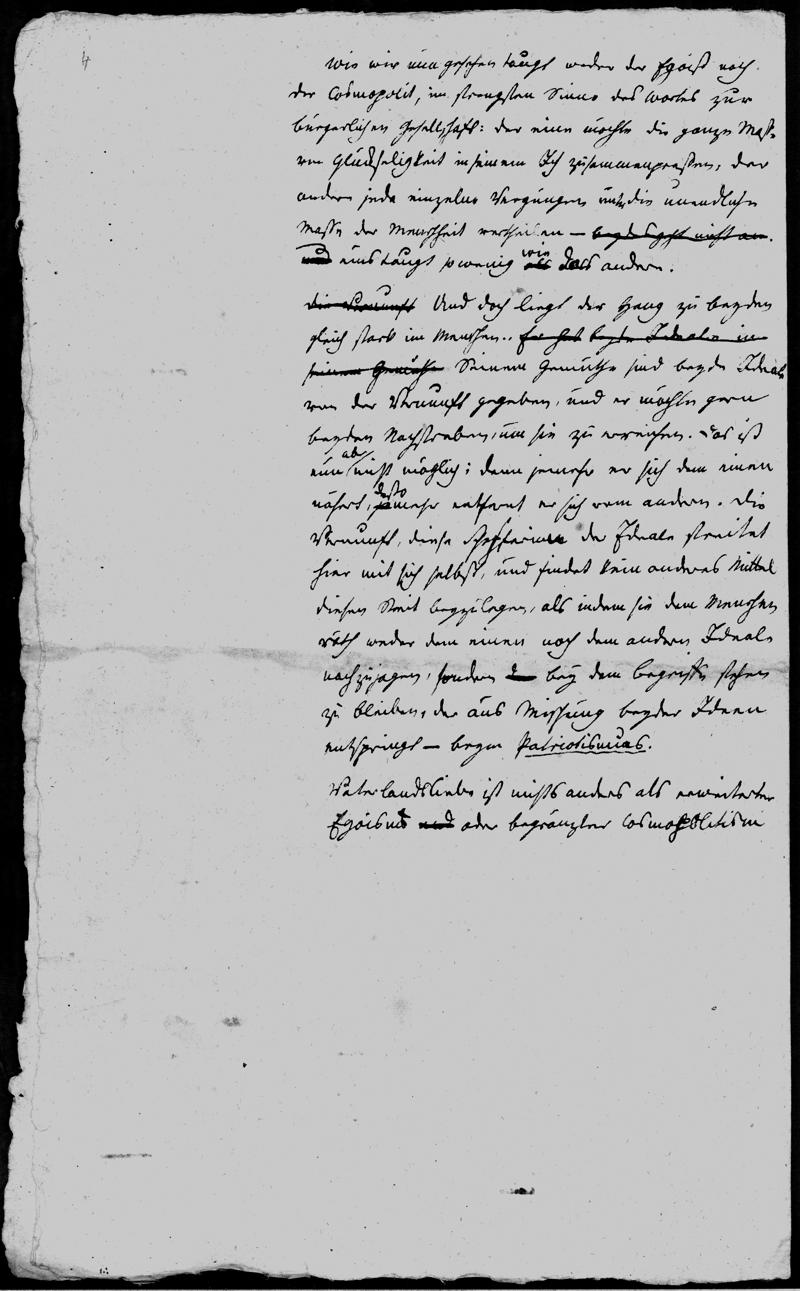 4
Wie wir nun gesehen taugt weder der Egoist noch
der Cosmopolit, im strengsten Sinne des Wortes zur
bürgerlichen Gesellschaft: der eine möchte die ganze Mass-
von Glückseligkeit in seinem Ich zusammenpressen, der
andere jede einzelne Vergnügen unter die unendliche
Masse der Menschheit vertheilen — beydes geht nicht an.
und eins taugt so wenig als wie das andere.
die Vernunft Und doch liegt der Hang zu beyden
gleich stark im Menschen.. Er hat beyde Ideale in
seinem Gemüthe Seinem Gemüthe sind beyde Ideale
von der Vernunft gegeben, und er möchte gern
beyden Nachstreben, um sie zu erreichen. Das ist
nun aber nicht möglich; denn jemehr er sich dem einen
nähert, jemehr desto entfernt er sich vom andern. Die
Vernunft, diese Schöpferinn der Ideale streitet
hier mit sich selbst, und findet kein anderes Mittel
diesen Streit beyzulegen, als indem sie dem Menschen
räth weder dem einen noch dem andern Ideale
nachzujagen, sondern bey dem Begriffe stehen
zu bleiben, der aus Mischung beyder Ideen
entspringt — beym Patriotismus.
Vaterlandsliebe ist nichts anders als erweiterter
Egoismus und oder begränzter Cosmopolitism